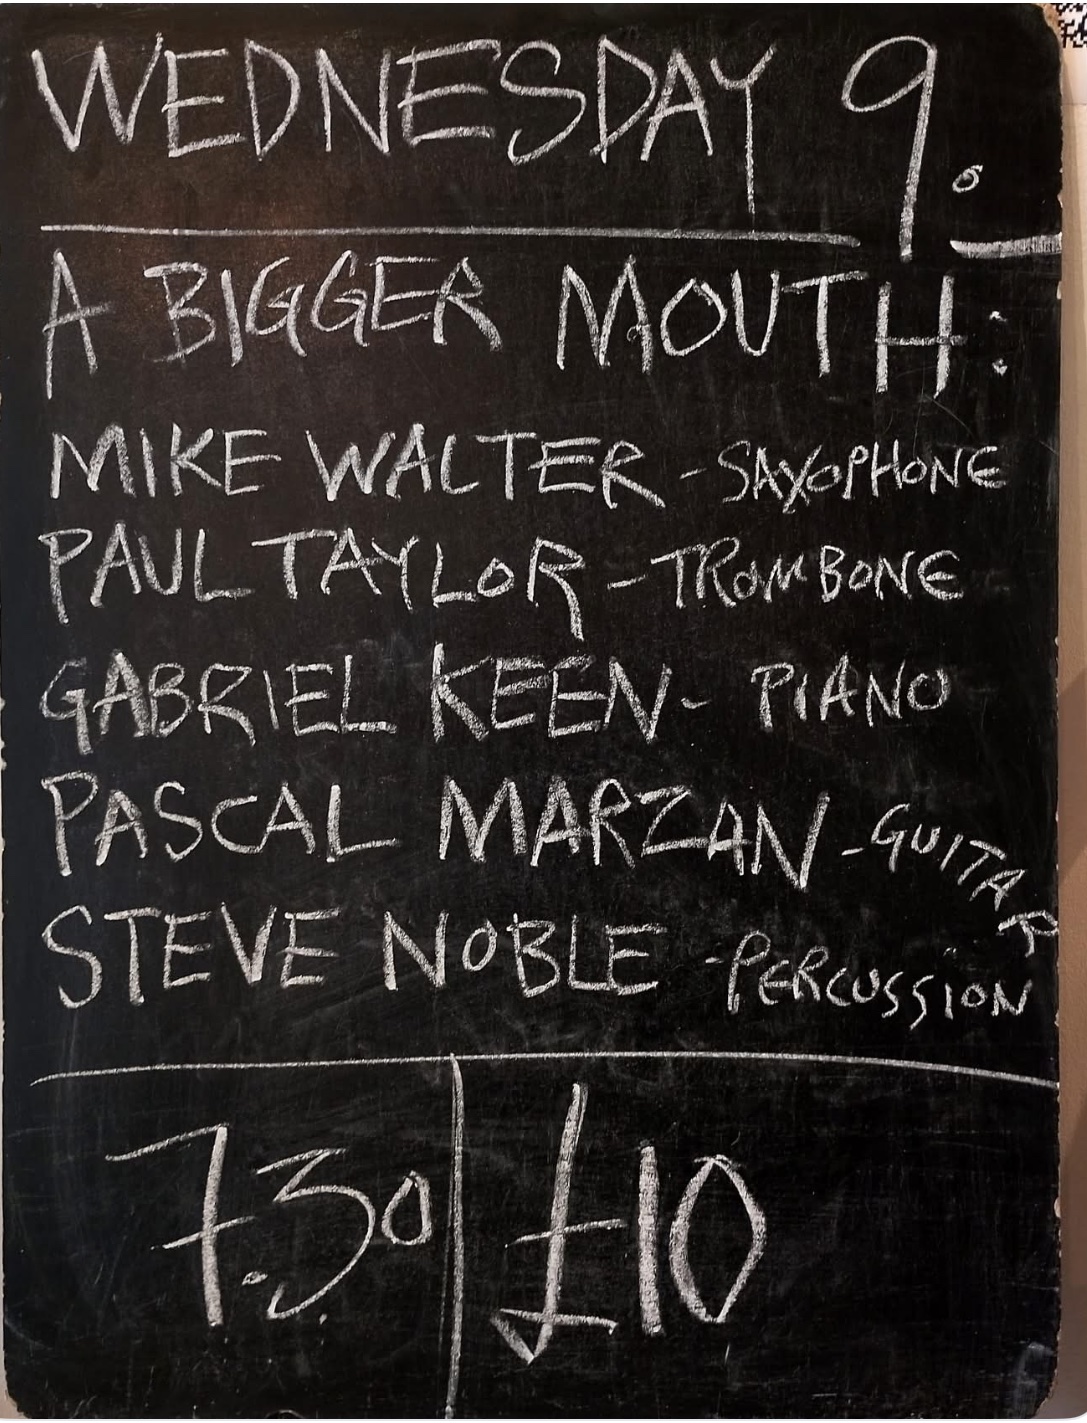 WEDNESDAY 9.
A BIGGER MOUTH:
MIKE WALTER - SAXOPHONE
PAUL TAYLOR - TROMBONE
GABRIEL KEEN - PIANO
PASCAL MARZAN - GUITAR
STEVE NOBLE - PERCUSSION
7.30 £10